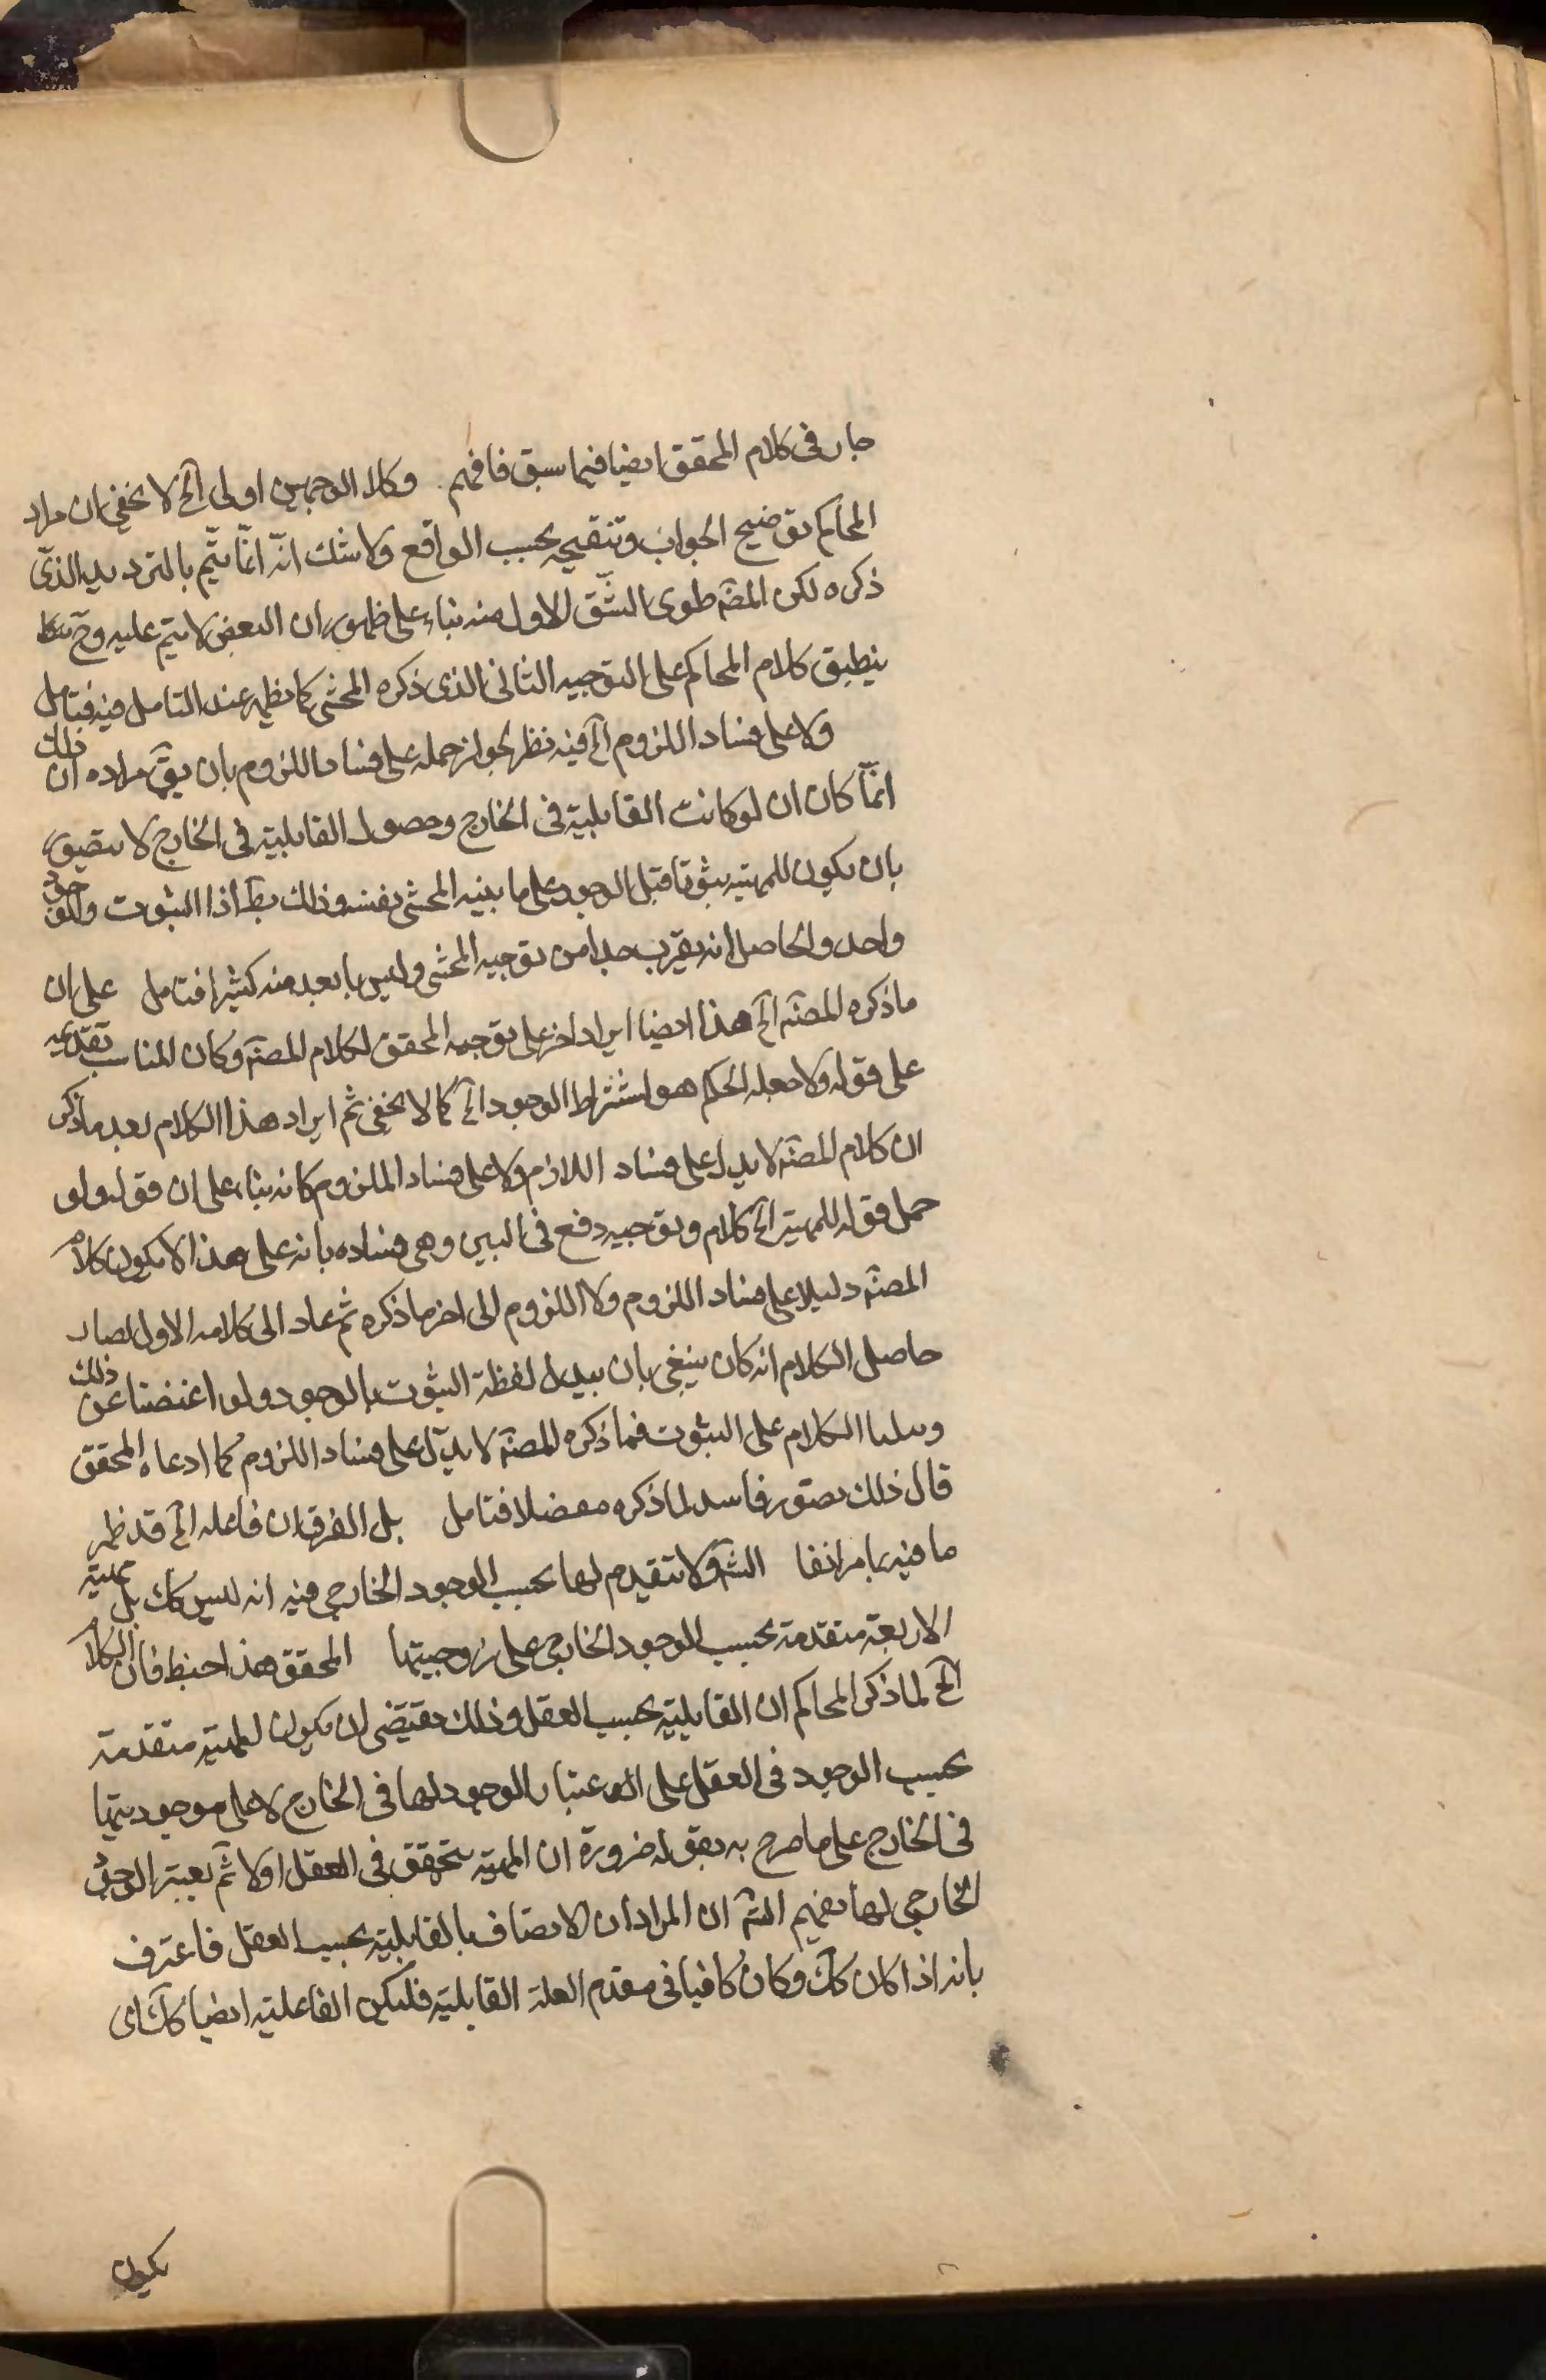 جار فى كلام المحقق ايضا فيما سبق فافهم وكلا الوجهين اولى آلخ لا يخفى ان مراد
المحاكم توضيح الجواب وتنقيحه بحسب الواقع ولا شك انّه انّما يتّم بالترديد الذى
ذكره لكن المصّ طوى الشّق الاول منه بناء على ظهور ان البعض لا يتم عليه وحّ
ينطبق كلام المحاكم على التوجيه الثانى الذى ذكره المحشى كما يظهر عند التامل فيه فتامل
ولا على فساد اللزوم آلخ فيه نظر لجواز حمله على فساد اللزوم بان يقّ مراده ان ذلك
انمّا كان ان لو كانت القابلية فى الخارج وحصول القابلية فى الخارج لا يتصور
بان يكون للمهية ثبوتا قبل الوجود على ما بينه المحشى بنفسه وذلك بطّ اذا الثبوت والوجود
واحد والحاصل انه يقرب جدا من توجيه المحشى وليس بابعد منه كثيرا فتامل على ان
ما ذكره المصنّ آلخ هذا ايضا ايراد اخر على توجيه المحقق لكلام المصنّ وكان المناسب تقديمه
على قوله ولا جعله الحكم هو اشتراط الوجود آلخ كما لا يخفى ثم ايراد هذا الكلام بعد ما ذكر
ان كلام المصنّ لا يدل على فساد اللازم ولا على فساد الملزوم كانه بناء على ان قوله ولو
حمل قوله للمهية آلخ كلام وتوجيه دفع فى البين وهى فساده بانه على هذا لا يكون كلام
المصنّ دليلا على فساد اللزوم ولا اللزوم الى اخر ما ذكره ثم عاد الى كلامه الاول فصار
حاصل الكلام انه كان ينبغى بان يبدل لفظة الثبوت بالوجود ولو اغمضنا عن ذلك
وبدلنا الكلام على الثبوت فما ذكره المصنّ لا يدّل على فساد اللزوم كما ادعاه المحقق
قال ذلك تصور فاسد لما ذكره مفصلا فتامل بل الفرق ان فاعله آلخ قد ظهر
ما فيه بامر انفا الشّ ولا تتقدم لها بحسب الوجود الخارجى فيه انه ليس كك بل مهية
الاربعة متقدمة بحسب الوجود الخارجى على زوجيتها المحقق هذا احفظ فان الكلام
آلخ لما ذكر المحاكم ان القابلية بحسب العقل وذلك يقتضى ان يكون للمهية متقدمة
بحسب الوجود فى العقل على اعتبار الوجود لها فى الخارج لا على موجوديتها
فى الخارج على ما صرح به بقوله ضرورة ان المهية يتحقق فى العقل اولا ثم يعتبر الوجود
الخارجى لها بفهم الشّ ان المراد ان الاتصاف بالقابلية بحسب العقل فاعترف
بانه اذا كان كك وكان كافيا فى تقدم العلة القابلية فليكن الفاعلية ايضا كك اى
يكون